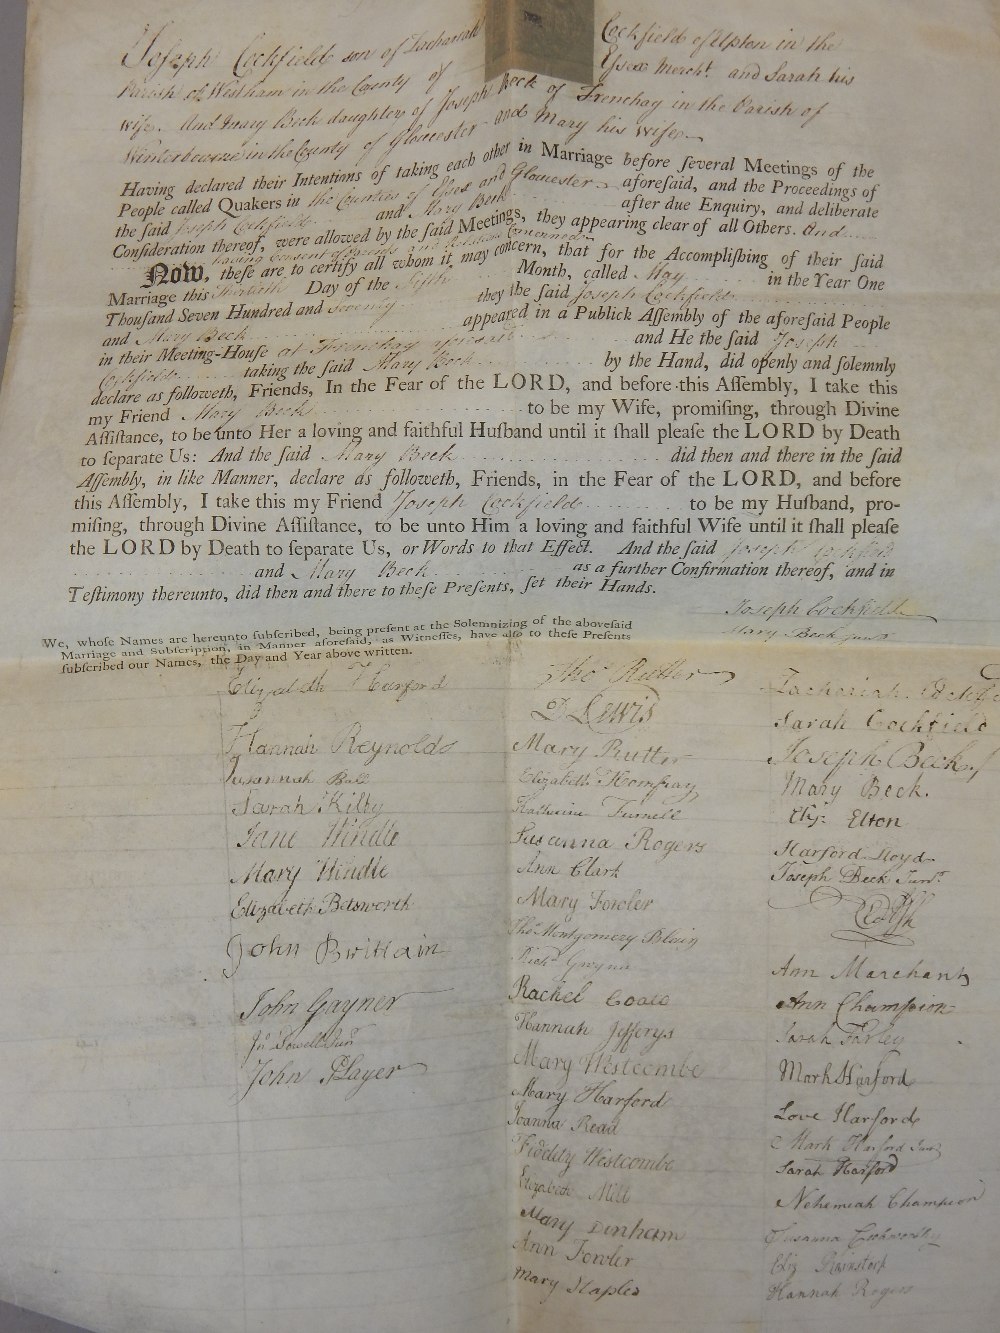 Joseph Cockfield son of Zachariah Cockfield of Upton in the
Parish of Westham in the County of Essex Mercht. and Sarah his
wife. And Mary Beck daughter of Joseph Beck of Frenchay in the Parish of
Winterbourne in the County of Gloucester and Mary his Wife
Having declared their Intentions of taking each other in Marriage before ſeveral Meetings of the
People called Quakers in the Counties of Essex and Gloucester aforeſaid, and the Proceedings of
the ſaid Joseph Cockfield and Mary Beck after due Enquiry, and deliberate
Conſideration thereof, were allowed by the ſaid Meetings, they appearing clear of all Others. And
having Consent of Parents and Relations Concerned
Now, theſe are to certify all whom it may concern, that for the Accompliſhing of their ſaid
Marriage this Thirtieth Day of the Fifth Month, called May in the Year One
Thouſand Seven Hundred and Seventy they the ſaid Joseph Cockfield
and Mary Beck appeared in a Publick Aſſembly of the aforeſaid People
in their Meeting-Houſe at Frenchay and He the ſaid Joseph
Cockfield taking the ſaid Mary Beck by the Hand, did openly and ſolemnly
declare as followeth, Friends, In the Fear of the LORD, and before this Aſſembly, I take this
my Friend Mary Beck to be my Wife, promiſing, through Divine
Aſſiſtance, to be unto Her a loving and faithful Huſband until it ſhall pleaſe the LORD by Death
to ſeparate Us: And the ſaid Mary Beck did then and there in the ſaid
Aſſembly, in like Manner, declare as followeth, Friends, in the Fear of the LORD, and before
this Aſſembly, I take this my Friend Joseph Cockfield to be my Huſband, pro-
miſing, through Divine Aſſiſtance, to be unto Him a loving and faithful Wife until it ſhall pleaſe
the LORD by Death to ſeparate Us, or Words to that Effect. And the ſaid Joseph Cockfield
and Mary Beck as a further Confirmation thereof, and in
Teſtimony thereunto, did then and there to theſe Preſents, ſet their Hands.
Joseph Cockfield
Mary Beck Junr
We, whoſe Names are hereunto ſubſcribed, being preſent at the Solemnizing of the aboveſaid
Marriage and Subſcription, in Manner aforeſaid, as Witneſſes, have alſo to theſe Preſents
ſubſcribed our Names, the Day and Year above written.
Elizabeth Harford
Hannah Reynolds
Susannah Ball
Sarah Kilby
Jane Windle
Mary Windle
Elizabeth Betsworth
John Brittain
John Gayner
Jno Dowell Junr
John Player
Tho Rutter
D Lewis
Mary Rutter
Elizabeth Homfray
Katharine Furnell
Susanna Rogers
Ann Clark
Mary Fowler
Tho Montgomery Blair
Richd Gwynn
Rachel Coale
Hannah Jefferys
Mary Westcombe
Mary Harford
Joanna Read
Fidelity Westcombe
Elizabeth Mill
Mary Dinham
Ann Fowler
Mary Staples
Zachariah Cockfield
Sarah Cockfield
Joseph Beck
Mary Beck.
Elton
Harford Lloyd
Joseph Beck Junr
Ann Marchant
Ann Champion
Sarah Farley
Mark Harford
Love Harford
Mark Harford Junr
Sarah Harford
Nehemiah Champion
Susanna Cookworthy
Eliz Rainstorp
Hannah Rogers